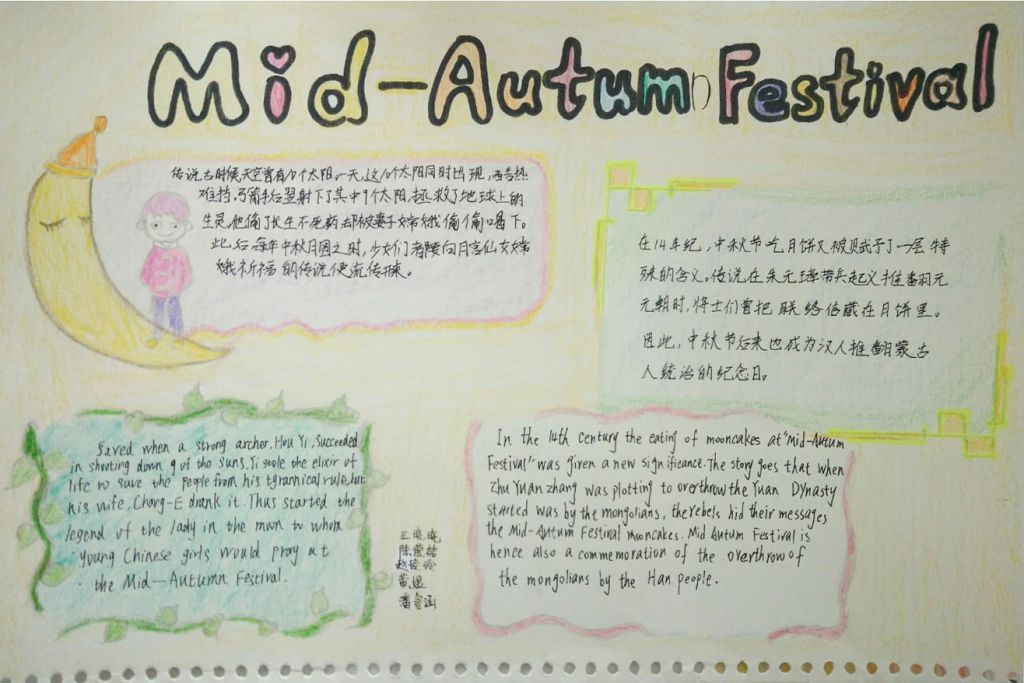 Mid-Autumn Festival
传说古时候,天空曾有10个太阳。一天,这10个太阳同时出现,酷热
难挡。弓箭手后羿射下了其中9个太阳,拯救了地球上的
生灵。他偷了长生不死药,却被妻子嫦娥偷偷喝下。
此后每年中秋月圆之时,少女们都要向月宫仙女嫦
娥祈福的传说便流传开来。
在14年纪,中秋节吃月饼又被赋予了一层特
殊的含义。传说在朱元璋带兵起义推翻元
元朝时,将士们曾把联络信藏在月饼里。
因此,中秋节后来也成为汉人推翻蒙古
人统治的纪念日。
Saved when a strong archer, Hou Yi, Succeeded
in shooting down 9 of the suns. Yi stole the elixir of
life to save the people from his tyrannical rule, but
his wife, Chang-E drank it. Thus started the
legend of the lady in the moon to whom
young Chinese girls would pray at
the Mid-Autumn Festival.
In the 14th century the eating of mooncakes at "Mid-Autum
Festival" was given a new significance. The story goes that when
Zhu Yuan zhang was plotting to overthrow the Yuan DYnasty
started was by the mongolians, the rebels hid their messages
the Mid-Autum Festival mooncakes. Mid Autum Festival is
hence also a commemoration of the overthrow of
the mongolians by the Han people.